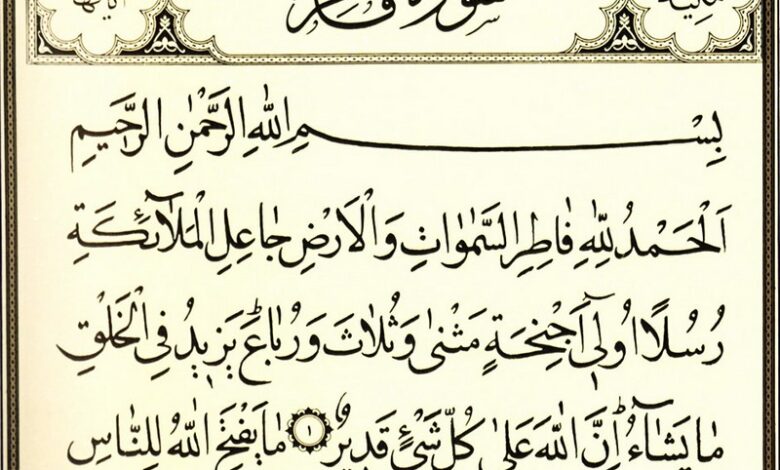 سورة فاطر
بِسْمِ اللهِ الرَّحْمٰنِ الرَّحِيمِ
اَلْحَمْدُ لِلّٰهِ فَاطِرِ السَّمٰوَاتِ وَالْاَرْضِ جَاعِلِ الْمَلٰٓائِكَةِ
رُسُلًا اُولٖٓى اَجْنِحَةٍ مَثْنٰى وَثُلَاثَ وَرُبَاعَؕ يَزٖيدُ فِى الْخَلْقِ
مَا يَشَٓاءُؕ اِنَّ اللهَ عَلٰى كُلِّ شَىْءٍ قَدٖيرٌ ١ مَا يَفْتَحِ اللهُ لِلنَّاسِ